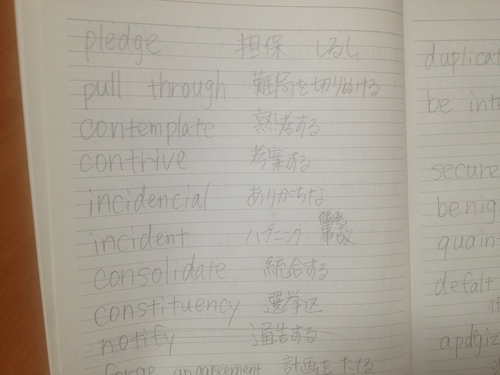 pledge 担保 しるし
pull through 難局を切りぬける
contemplate 熟考する
contrive 考案する
incidencial ありがちな
incident ハプニング 事故
consolidate 統合する
constituency 選挙区
notify 通告する
計画を立てる
duplicat
be int
secure
benig
quain
defalt